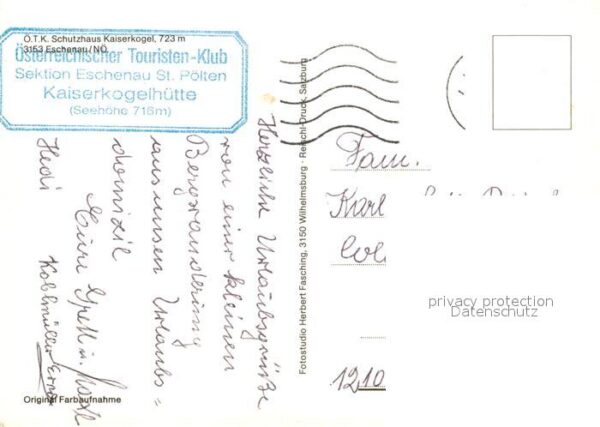 Ö.T.K. Schutzhaus Kaiserkogel, 723 m
3153 Eschenau/NÖ
Österreichischer Touristen-Klub
Sektion Eschenau St. Pölten
Kaiserkogelhütte
(Seehöhe 716m)
Herzliche Urlaubsgrüße
von einer kleinen
Bergwanderung
aus unsern Urlaubs=
domizil
Eure
Hedi
Original Farbaufnahme
Fotostudio Herbert Fasching, 3150 Wilhelmsburg - Druck, Salzburg
Fam.
Karl
1210
privacy protection
Datenschutz